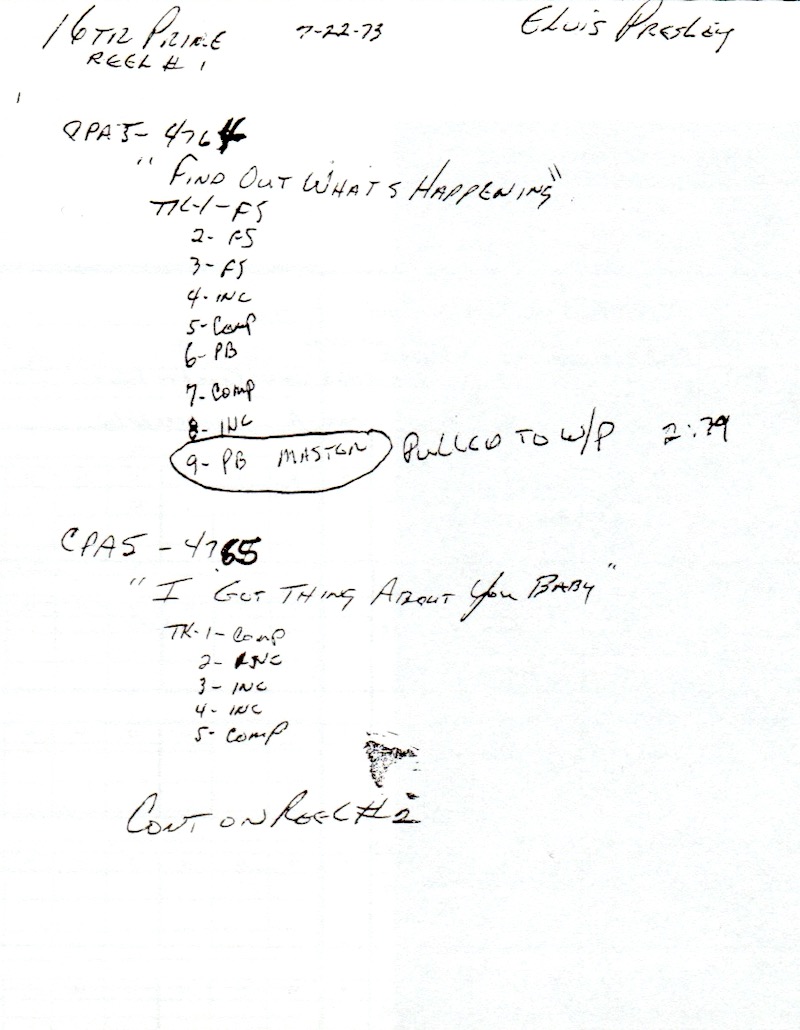 16TR PRIME 7-22-73 ELVIS PRESLEY
REEL # 1
CPA5- 4764
"FIND OUT WHAT'S HAPPENING"
TK-1-FS
2- FS
3- FS
4- INC
5- Comp
6- PB
7- Comp
8- INC
9- PB MASTER PULLED TO W/P 2:39
CPA5 - 4765
"I GOT THING ABOUT You BABY"
TK-1-Comp
2- INC
3- INC
4- INC
5- Comp
CONT ON REEL #2